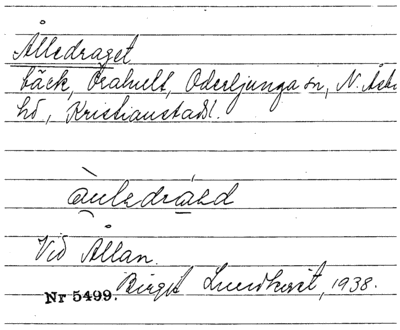 Ålledraget
bäck, Örahult, Oderljunga sn, N. Åsbo
hd, Kristianstadsl.
Vid Ållan.
Nr 5499. Birgit Lundkvist, 1938.